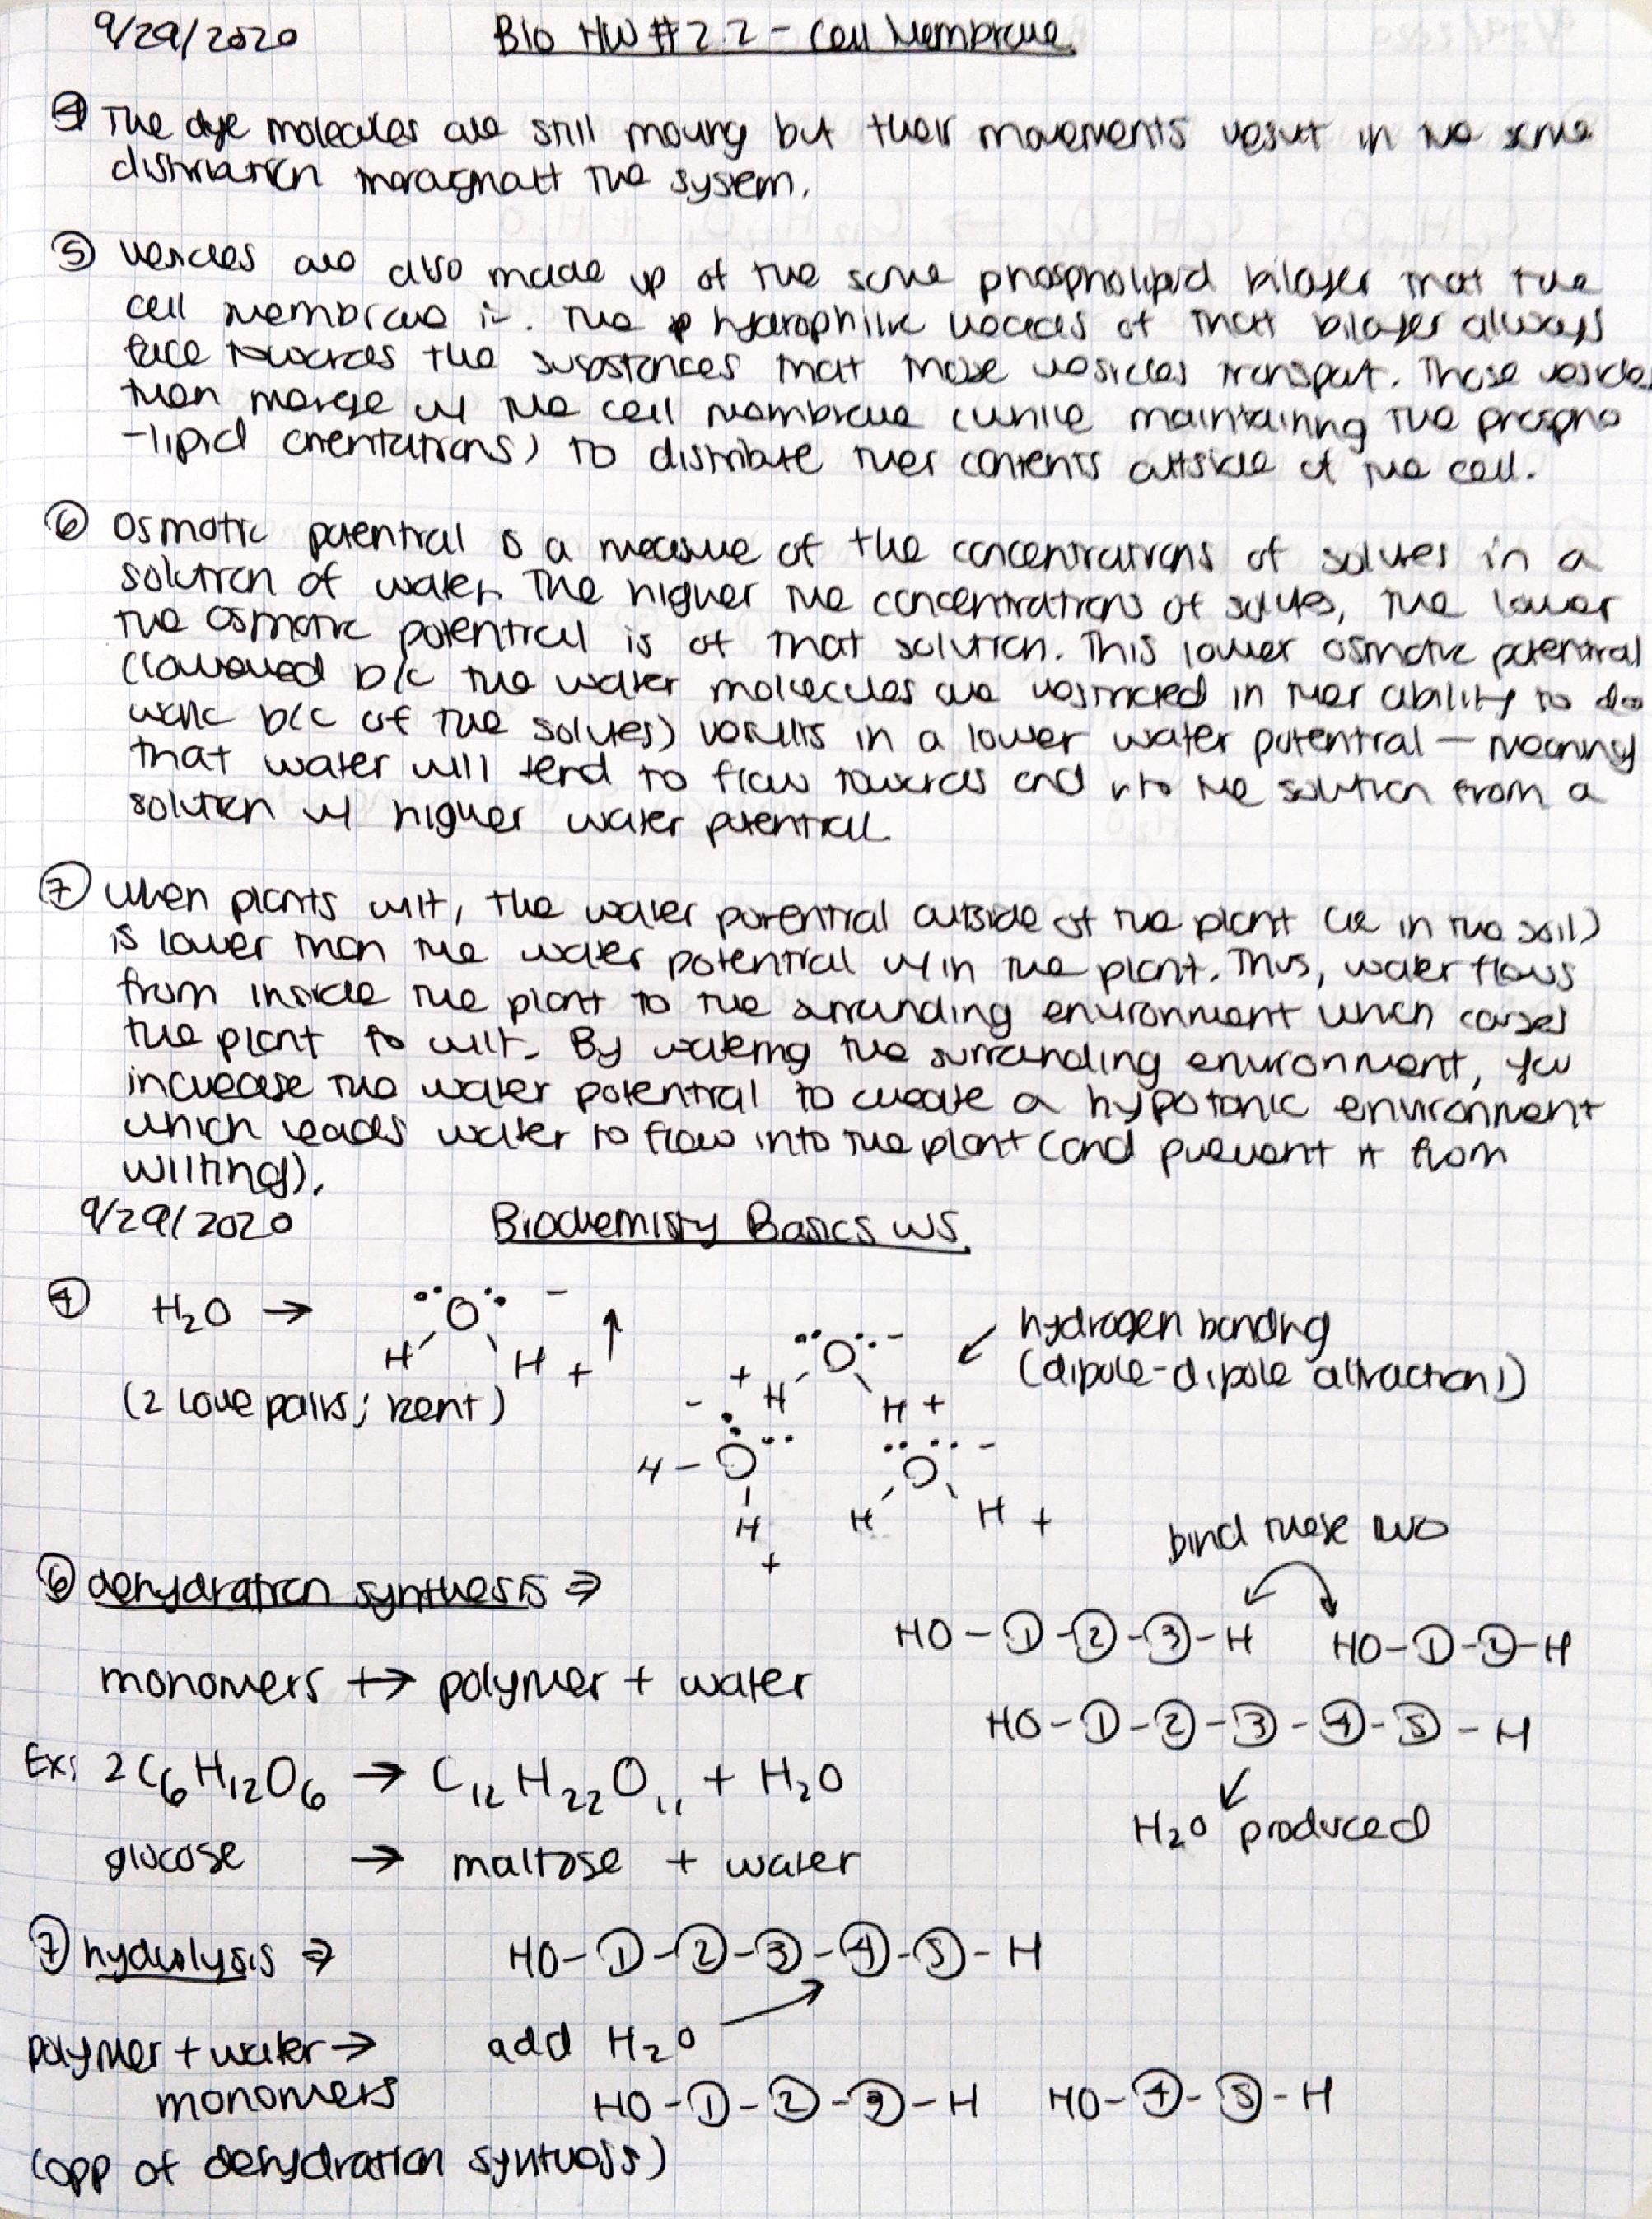 9/29/2020 Bio HW #2.2 - Cell Membrane
④ The dye molecules are still moving but their movements result in the same
distribution throughout the system.
⑤ Vesicles are also made up of the same phospholipid bilayer that the
cell membrane is. The hydrophilic heads of that bilayer always
face towards the substances that those vesicles transport. Those vesicles
then merge w/ the cell membrane (while maintaining the phospho
-lipid orientations) to distribute their contents outside of the cell.
⑥ Osmotic potential is a measure of the concentrations of solutes in a
solution of water. The higher the concentrations of solutes, the lower
the osmotic potential is of that solution. This lower osmotic potential
(lowered b/c the water molecules are restricted in their ability to do
work b/c of the solutes) results in a lower water potential — meaning
that water will tend to flow towards and into the solution from a
solution w/ higher water potential.
⑦ When plants wilt, the water potential outside of the plant (ie in the soil)
is lower than the water potential w/in the plant. Thus, water flows
from inside the plant to the surrounding environment which causes
the plant to wilt. By watering the surrounding environment, you
increase the water potential to create a hypotonic environment
which leads water to flow into the plant (and prevent it from
wilting).
9/29/2020 Biochemistry Basics WS
④ H₂O → O - H H +
(2 lone pairs; bent)
hydrogen bonding
(dipole-dipole attraction!)
O -
+ H H +
- O O -
H - H H +
H
+
bind these two
⑥ dehydration synthesis ⇒
HO-①-②-③-H HO-①-②-H
monomers → polymer + water
HO-①-②-③-④-⑤-H
Ex: 2C₆H₁₂O₆ → C₁₂H₂₂O₁₁ + H₂O
H₂O produced
glucose → maltose + water
⑦ hydrolysis ⇒ HO-①-②-③-④-⑤-H
polymer + water → add H₂O
monomers HO-①-②-③-H HO-④-⑤-H
(opp of dehydration synthesis)